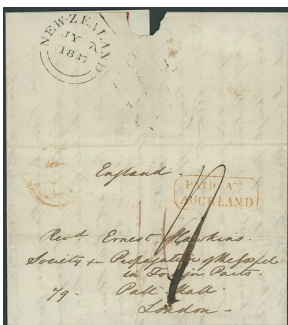 NEW-ZEALAND
JY 7
1847
England.
PAID AT
AUCKLAND
Revd. Ernest Hawkins.
Society for Propagation of the Gospel
in Foreign Parts.
79. Pall Mall
London.